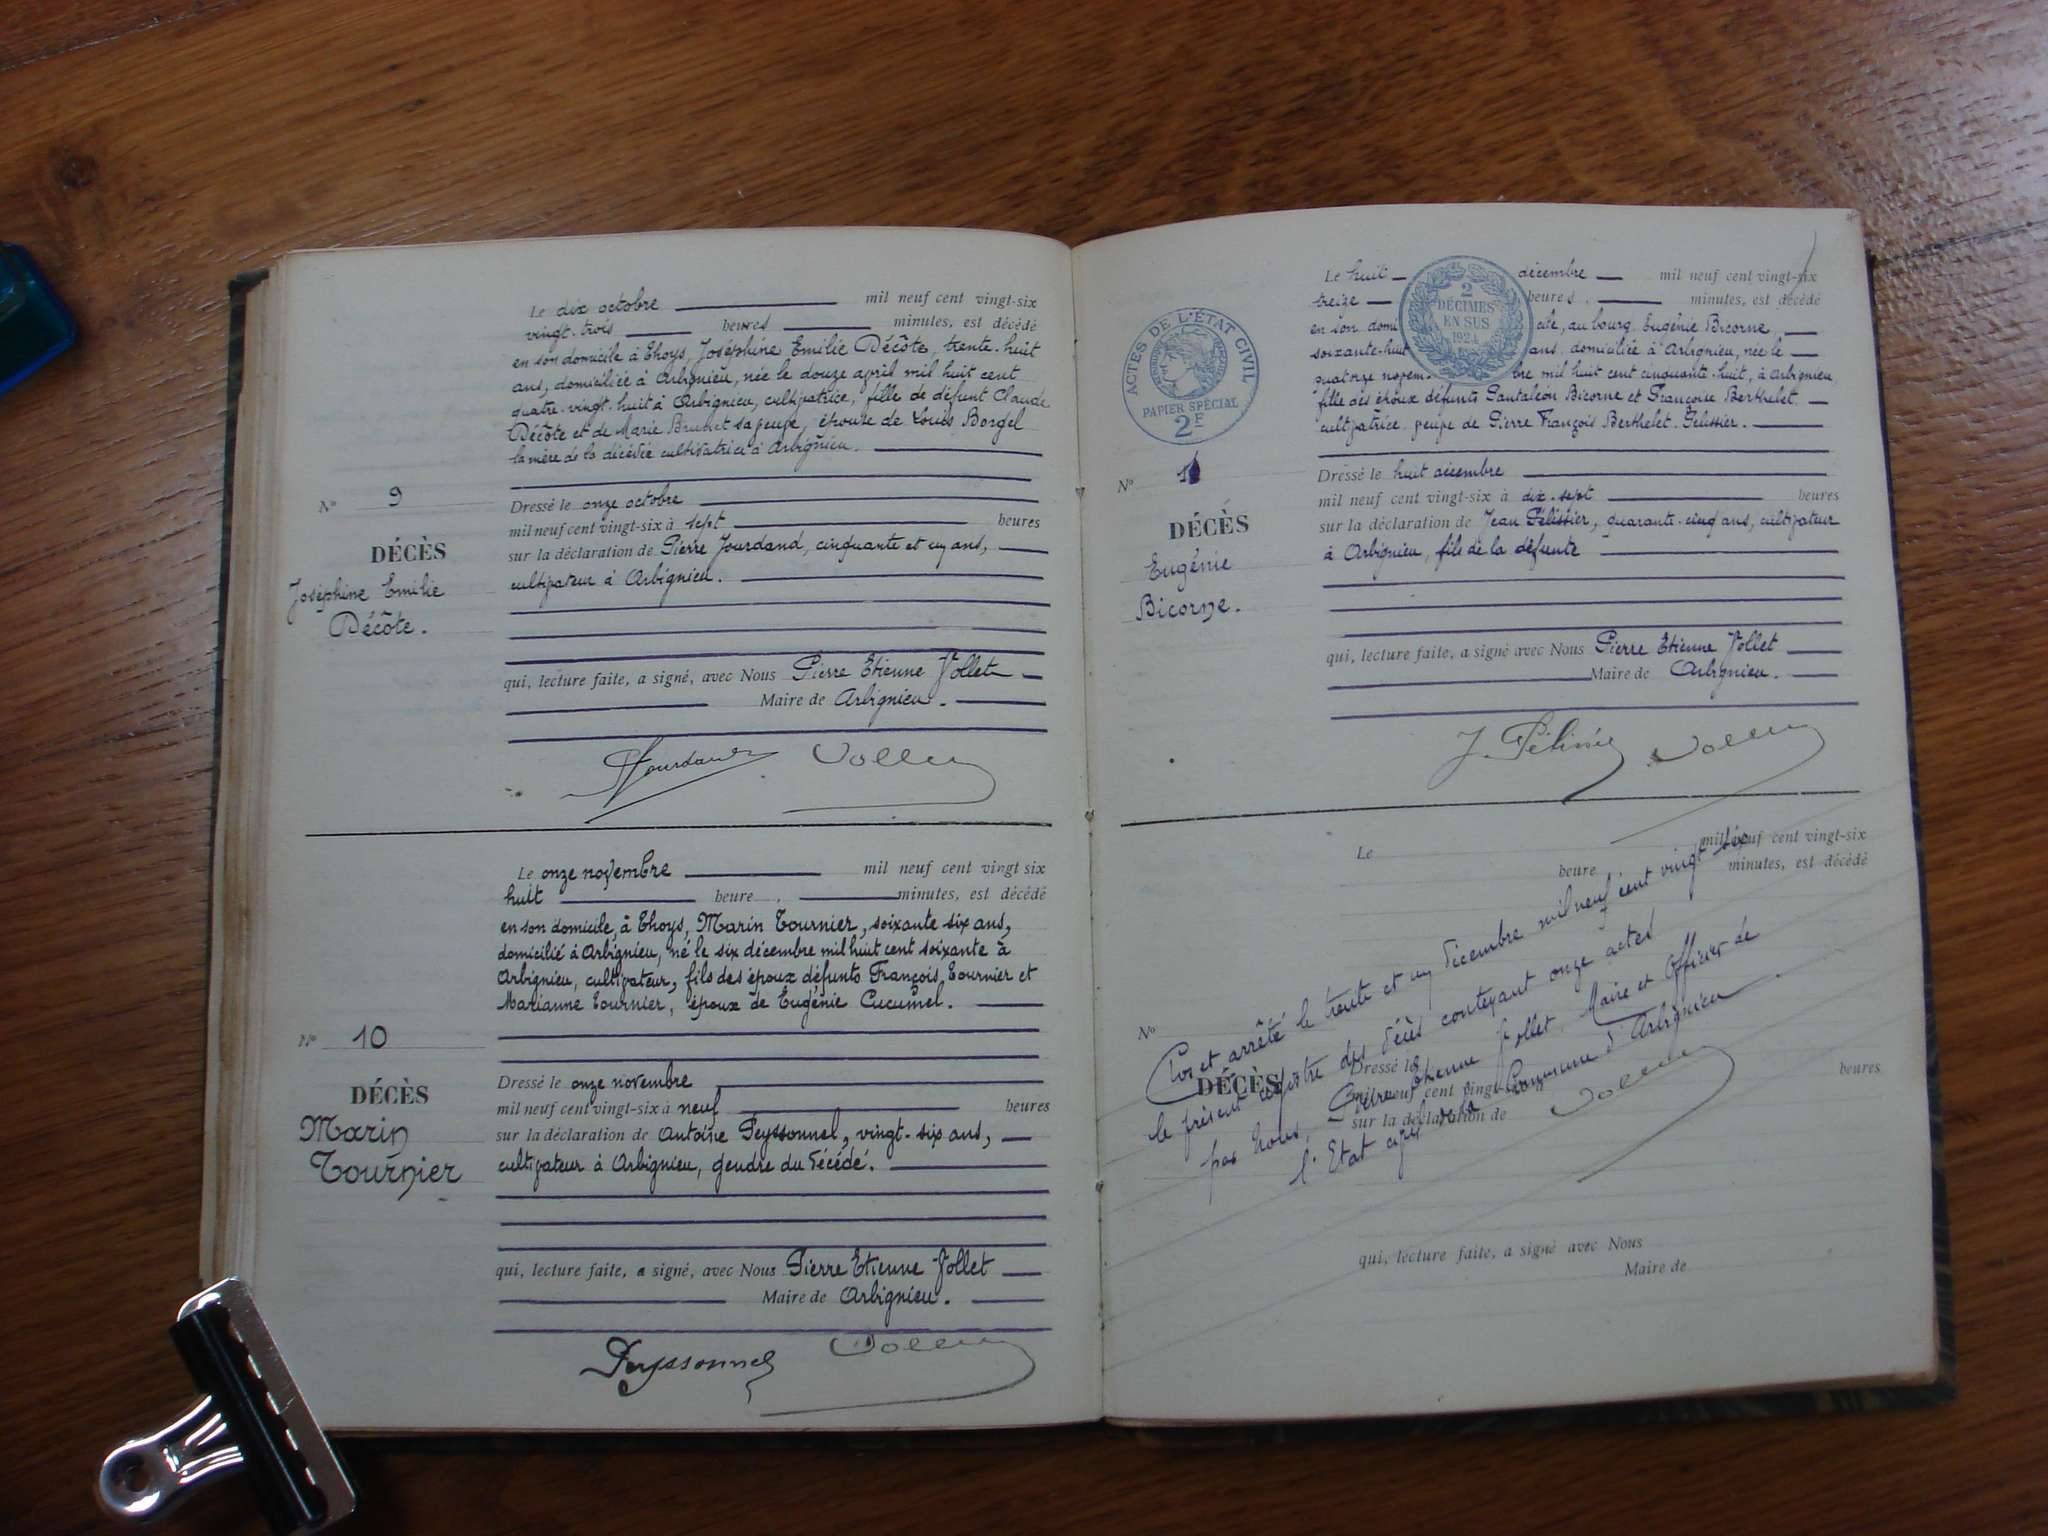 Le dix octobre mil neuf cent vingt-six
vingt-trois heures minutes, est décédé
en son domicile à Thoys, Joséphine Emilie Décôte, trente-huit
ans, domiciliée à Arbignieu, née le douze avril mil huit cent
quatre-vingt-huit à Arbignieu, cultivatrice, fille de défunt Claude
Décôte et de Marie Brunet sa veuve, épouse de Louis Borgel
la mère de la décédée cultivatrice à Arbignieu.
N° 9
DÉCÈS
Joséphine Emilie
Décôte.
Dressé le onze octobre
mil neuf cent vingt-six à sept heures
sur la déclaration de Pierre Jourdand, cinquante et un ans,
cultivateur à Arbignieu.
qui, lecture faite, a signé, avec Nous Pierre Etienne Vollet
Maire de Arbignieu.
Jourdand Vollet
Le onze novembre mil neuf cent vingt six
huit heure minutes, est décédé
en son domicile, à Thoys, Marin Tournier, soixante-six ans,
domicilié à Arbignieu, né le six décembre mil huit cent soixante à
Arbignieu, cultivateur, fils des époux défunts François Tournier et
Marianne Tournier, époux de Eugénie Cucumel.
N° 10
DÉCÈS
Marin
Tournier
Dressé le onze novembre
mil neuf cent vingt-six à neuf heures
sur la déclaration de Antoine Peyssonnel, vingt-six ans,
cultivateur à Arbignieu, gendre du décédé.
qui, lecture faite, a signé, avec Nous Pierre Etienne Vollet
Maire de Arbignieu.
Peyssonnel Vollet
ACTES DE L'ÉTAT CIVIL
PAPIER SPÉCIAL
2F
2
DÉCIMES
EN SUS
1924
Le huit décembre mil neuf cent vingt-six
treize heures minutes, est décédé
en son domicile, au bourg, Eugénie Bicorne,
soixante-huit ans, domiciliée à Arbignieu, née le
quatorze novembre mil huit cent cinquante-huit, à Arbignieu,
fille des époux défunts Pantaléon Bicorne et Françoise Berthelet.
cultivatrice veuve de Pierre François Berthelet-Pélissier.
N° 11
DÉCÈS
Eugénie
Bicorne.
Dressé le huit décembre
mil neuf cent vingt-six à dix-sept heures
sur la déclaration de Jean Pélissier, quarante-cinq ans, cultivateur
à Arbignieu, fils de la défunte
qui, lecture faite, a signé avec Nous Pierre Etienne Vollet
Maire de Arbignieu.
J. Pélissier Vollet
Le mil neuf cent vingt-six
heure minutes, est décédé
N°
DÉCÈS
Dressé le
mil neuf cent vingt-six heures
sur la déclaration de
Clos et arrêté le trente et un décembre mil neuf cent vingt six
le présent registre des décès contenant onze actes
par nous, Pierre Etienne Vollet, Maire et Officier de
l'Etat civil de la Commune d'Arbignieu
Vollet
qui, lecture faite, a signé avec Nous
Maire de